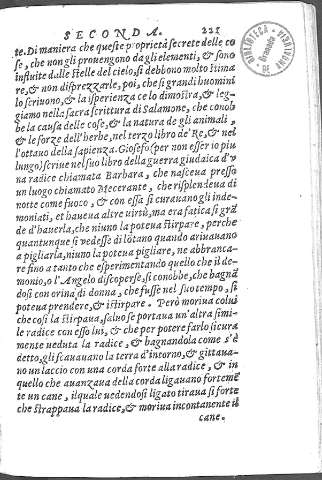 SECONDA. 221
te. Di maniera che queste proprietà secrete delle co
se, che non gli prouengono dagli elementi, & sono
influite dalle stelle del cielo, si debbono molto stima
re, & non disprezzarle, poi, che si grandi huomini
lo scriuono, & la isperienza ce lo dimostra, & leg-
giamo nella sacra scrittura di Salamone, che conob
be la causa delle cose, & la natura de gli animali,
& le forze dell'herbe, nel terzo libro de' Re, & nel
l'ottauo della sapienza. Giosefo (per non esser io piu
lungo) scriue nel suo libro della guerra giudaica d'v
na radice chiamata Barbara, che nasceua presso
un luogo chiamato Meccrante, che risplendeua di
notte come fuoco, & con essa si curauano gli inde-
moniati, et haueua altre virtù, ma era fatica si grã
de d'hauerla, che niuno la poteua stirpare, perche
quantunque si vedesse di lõtano quando ariuauano
a pigliarla, niuno la poteua pigliare, ne abbranca-
re fino a tanto che esperimentando quello che il de-
monio, o l'Angelo discoperse, si conobbe, che bagnã
dosi con orina di donna, che fusse nel suo tempo, si
poteua prendere, & istirpare. Però moriua colui
che cosi la stirpaua, saluo se portaua un'altra simi-
le radice con esso lui, & che per potere farlo sicura
mente ueduta la radice, & bagnandola come s'è
detto, gli scauauano la terra d'intorno, & gittaua-
no un laccio con una corda forte alla radice, & in
quello che auanzaua della corda ligauano fortemẽ
te un cane, ilquale uedendosi ligato tiraua si forte
che strappaua la radice, & moriua incontanente il
cane.
BIBLIOTECA
Granada